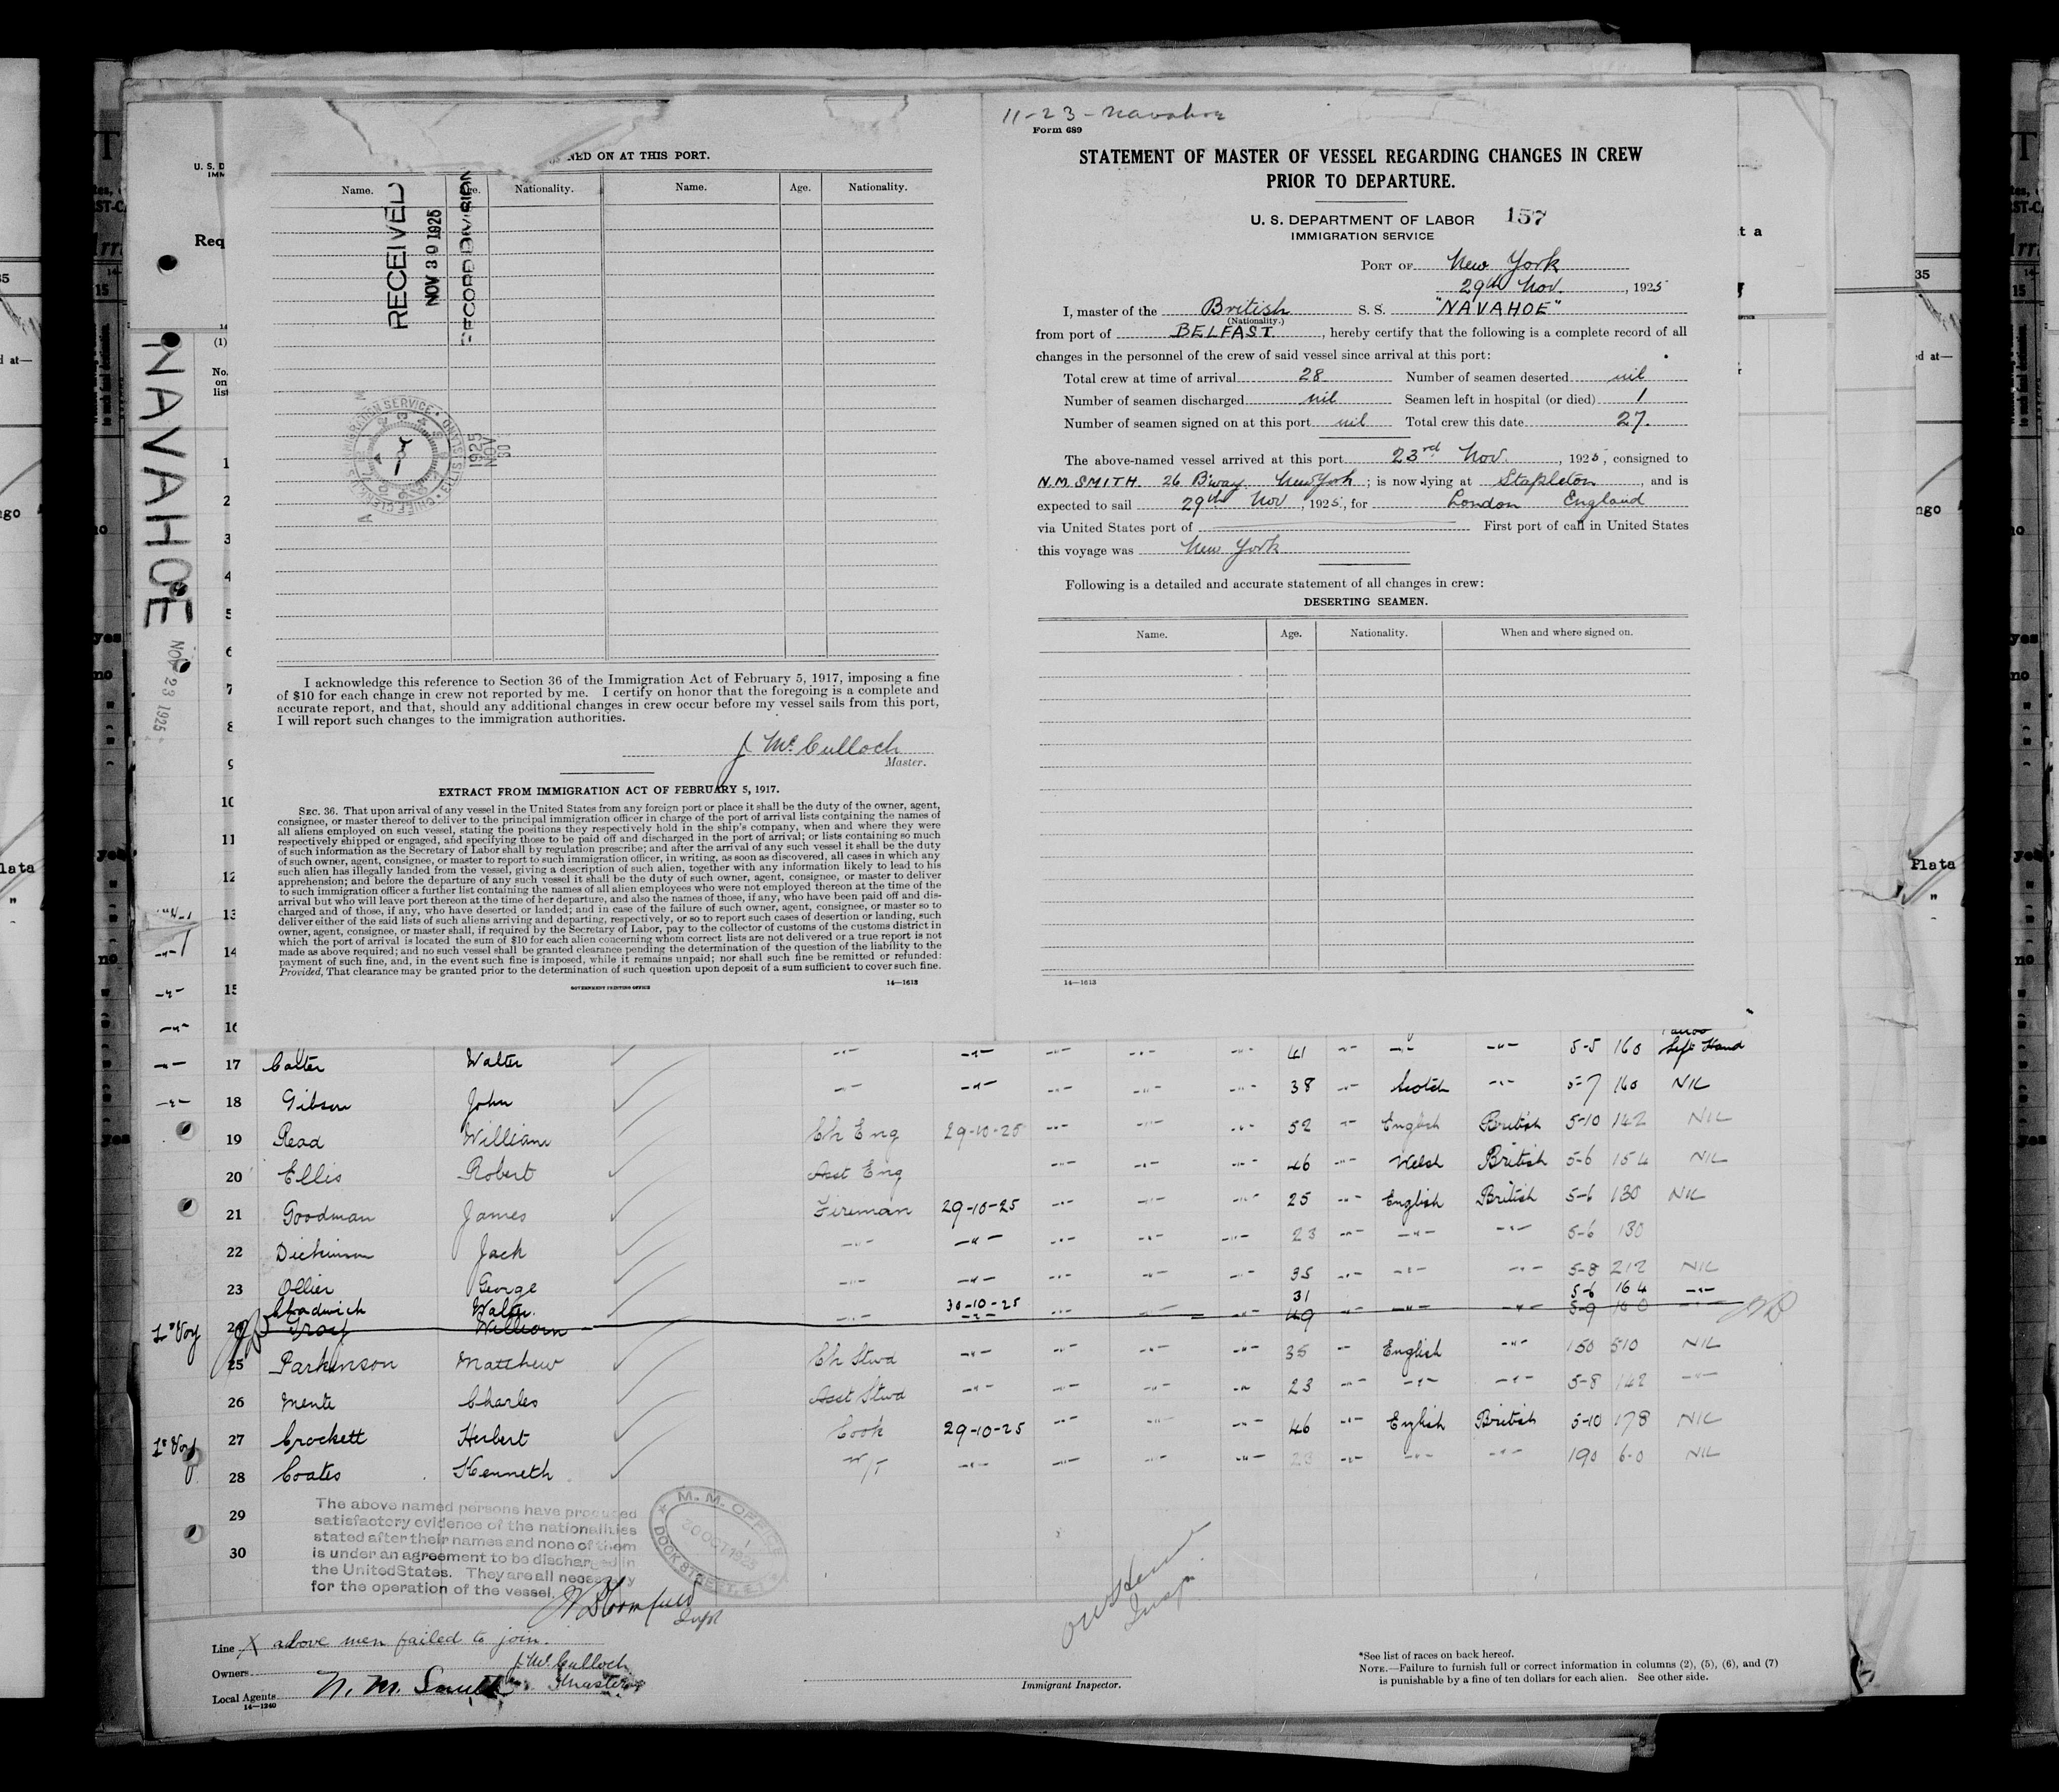 11-23-Navahoe
Form 689
STATEMENT OF MASTER OF VESSEL REGARDING CHANGES IN CREW
PRIOR TO DEPARTURE.
U. S. DEPARTMENT OF LABOR 157
IMMIGRATION SERVICE
PORT OF New York
29th Nov. , 1925
I, master of the British S. S. "NAVAHOE"
(Nationality.)
from port of BELFAST. , hereby certify that the following is a complete record of all
changes in the personnel of the crew of said vessel since arrival at this port:
Total crew at time of arrival 28 Number of seamen deserted nil
Number of seamen discharged nil Seamen left in hospital (or died) 1
Number of seamen signed on at this port nil Total crew this date 27.
The above-named vessel arrived at this port 23rd Nov. , 1925, consigned to
N.M. SMITH. 26 B'way. New York ; is now lying at Stapleton , and is
expected to sail 29th Nov , 1925, for London England
via United States port of First port of call in United States
this voyage was New York
Following is a detailed and accurate statement of all changes in crew:
DESERTING SEAMEN.
Name. Age. Nationality. When and where signed on.
14—1613
NED ON AT THIS PORT.
Name. Age. Nationality. Name. Age. Nationality.
RECEIVED
NOV 30 1925
RECORD DIVISION
IMMIGRATION SERVICE
CHIEF CLERK
ELLIS ISLAND
NOV 30
1925
I acknowledge this reference to Section 36 of the Immigration Act of February 5, 1917, imposing a fine
of $10 for each change in crew not reported by me. I certify on honor that the foregoing is a complete and
accurate report, and that, should any additional changes in crew occur before my vessel sails from this port,
I will report such changes to the immigration authorities.
J McCulloch
Master.
EXTRACT FROM IMMIGRATION ACT OF FEBRUARY 5, 1917.
SEC. 36. That upon arrival of any vessel in the United States from any foreign port or place it shall be the duty of the owner, agent,
consignee, or master thereof to deliver to the principal immigration officer in charge of the port of arrival lists containing the names of
all aliens employed on such vessel, stating the positions they respectively hold in the ship's company, when and where they were
respectively shipped or engaged, and specifying those to be paid off and discharged in the port of arrival; or lists containing so much
of such information as the Secretary of Labor shall by regulation prescribe; and after the arrival of any such vessel it shall be the duty
of such owner, agent, consignee, or master to report to such immigration officer, in writing, as soon as discovered, all cases in which any
such alien has illegally landed from the vessel, giving a description of such alien, together with any information likely to lead to his
apprehension; and before the departure of any such vessel it shall be the duty of such owner, agent, consignee, or master to deliver
to such immigration officer a further list containing the names of all alien employees who were not employed thereon at the time of the
arrival but who will leave port thereon at the time of her departure, and also the names of those, if any, who have been paid off and dis-
charged and of those, if any, who have deserted or landed; and in case of the failure of such owner, agent, consignee, or master so to
deliver either of the said lists of such aliens arriving and departing, respectively, or so to report such cases of desertion or landing, such
owner, agent, consignee, or master shall, if required by the Secretary of Labor, pay to the collector of customs of the customs district in
which the port of arrival is located the sum of $10 for each alien concerning whom correct lists are not delivered or a true report is not
made as above required; and no such vessel shall be granted clearance pending the determination of the question of the liability to the
payment of such fine, and, in the event such fine is imposed, while it remains unpaid; nor shall such fine be remitted or refunded:
Provided, That clearance may be granted prior to the determination of such question upon deposit of a sum sufficient to cover such fine.
GOVERNMENT PRINTING OFFICE 14—1613
NAVAHOE
NOV 23 1925
U. S. D
IMM
Req
(1)
No.
on
list
1
2
3
4
5
6
7
8
9
10
11
12
13
14
15
16
Left Hand
17 Walter -"- -"- -"- -"- -"- 41 -"- -"- -"- 5-5 160
18 Gibson John -"- -"- -"- -"- -"- 38 -"- Scotch -"- 5-7 160 NIL
19 Read William Ch Eng 29-10-25 -"- -"- -"- 52 -"- English British 5-10 142 NIL
20 Ellis Robert Asst Eng -"- -"- -"- 46 -"- Welsh British 5-6 154 NIL
21 Goodman James Fireman 29-10-25 -"- -"- -"- 25 -"- English British 5-6 130 NIL
22 Dickinson Jack -"- -"- -"- -"- -"- 23 -"- -"- -"- 5-6 130
23 Ollier George -"- -"- -"- -"- -"- 35 -"- -"- -"- 5-8 212 NIL
Chadwick Walter. 30-10-25 31 5-6 164 -"-
1st Voy 24 William -"- -"- -"- -"- -"- 49 -"- -"- -"- 5-9
25 Parkinson Matthew Ch Stwd -"- -"- -"- -"- 35 -"- English -"- 150 510 NIL
26 Mente Charles Asst Stwd -"- -"- -"- -"- 23 -"- -"- -"- 5-8 142 -"-
1st Voy 27 Crockett Herbert Cook 29-10-25 -"- -"- -"- 46 -"- English British 5-10 178 NIL
28 Coates Kenneth W/T -"- -"- -"- -"- 23 -"- -"- -"- 190 6-0 NIL
29
30
The above named persons have produced
satisfactory evidence of the nationalities
stated after their names and none of them
is under an agreement to be discharged in
the United States. They are all necessary
for the operation of the vessel.
M. M. OFFICE
30 OCT 1925
DOCK STREET, E.1
Line X above men failed to join.
J. McCulloch
Master
Owners
Local Agents N. M. Smith
14—1240
Insp.
Immigrant Inspector.
*See list of races on back hereof.
NOTE.—Failure to furnish full or correct information in columns (2), (5), (6), and (7)
is punishable by a fine of ten dollars for each alien. See other side.
35
ed at—
ngo
Plata
yes
no